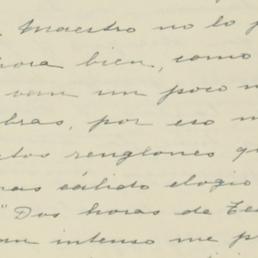 Maestro no lo p
hora bien, como
van un poco m
bras, por eso m
stos renglones q
mas cálido elogio
"Dos horas de Te
an intenso me p